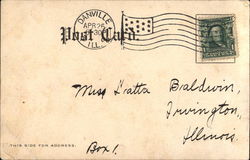 DANVILLE
APR 25
ILL.
Post Card.
Miss Katta Baldwin,
Irvington,
Illinois.
Box 1.
THIS SIDE FOR ADDRESS.